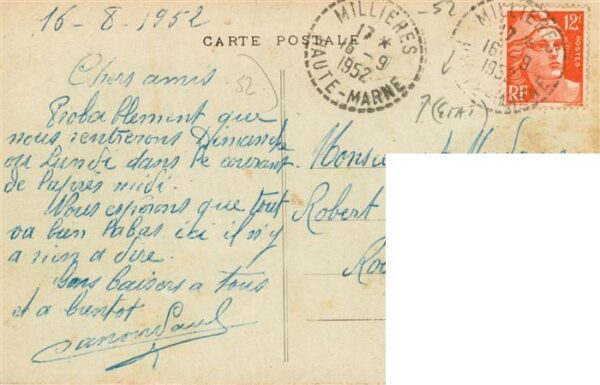 16-8-1952
CARTE POSTALE
-52
MILLIÈRES
17 *
16 - 9
1952
HAUTE-MARNE
MILLIÈRES
16 - 9
12F
POSTES
RF
52
(ETAT)
Chers amis
Probablement que
nous rentrerons Dimanche
ou Lundi dans le courant
de l'après midi.
Nous esperons que tout
va bien labas ici il n'y
a rien a dire.
Bons baisers a tous
et a bientot
Monsieur
Robert